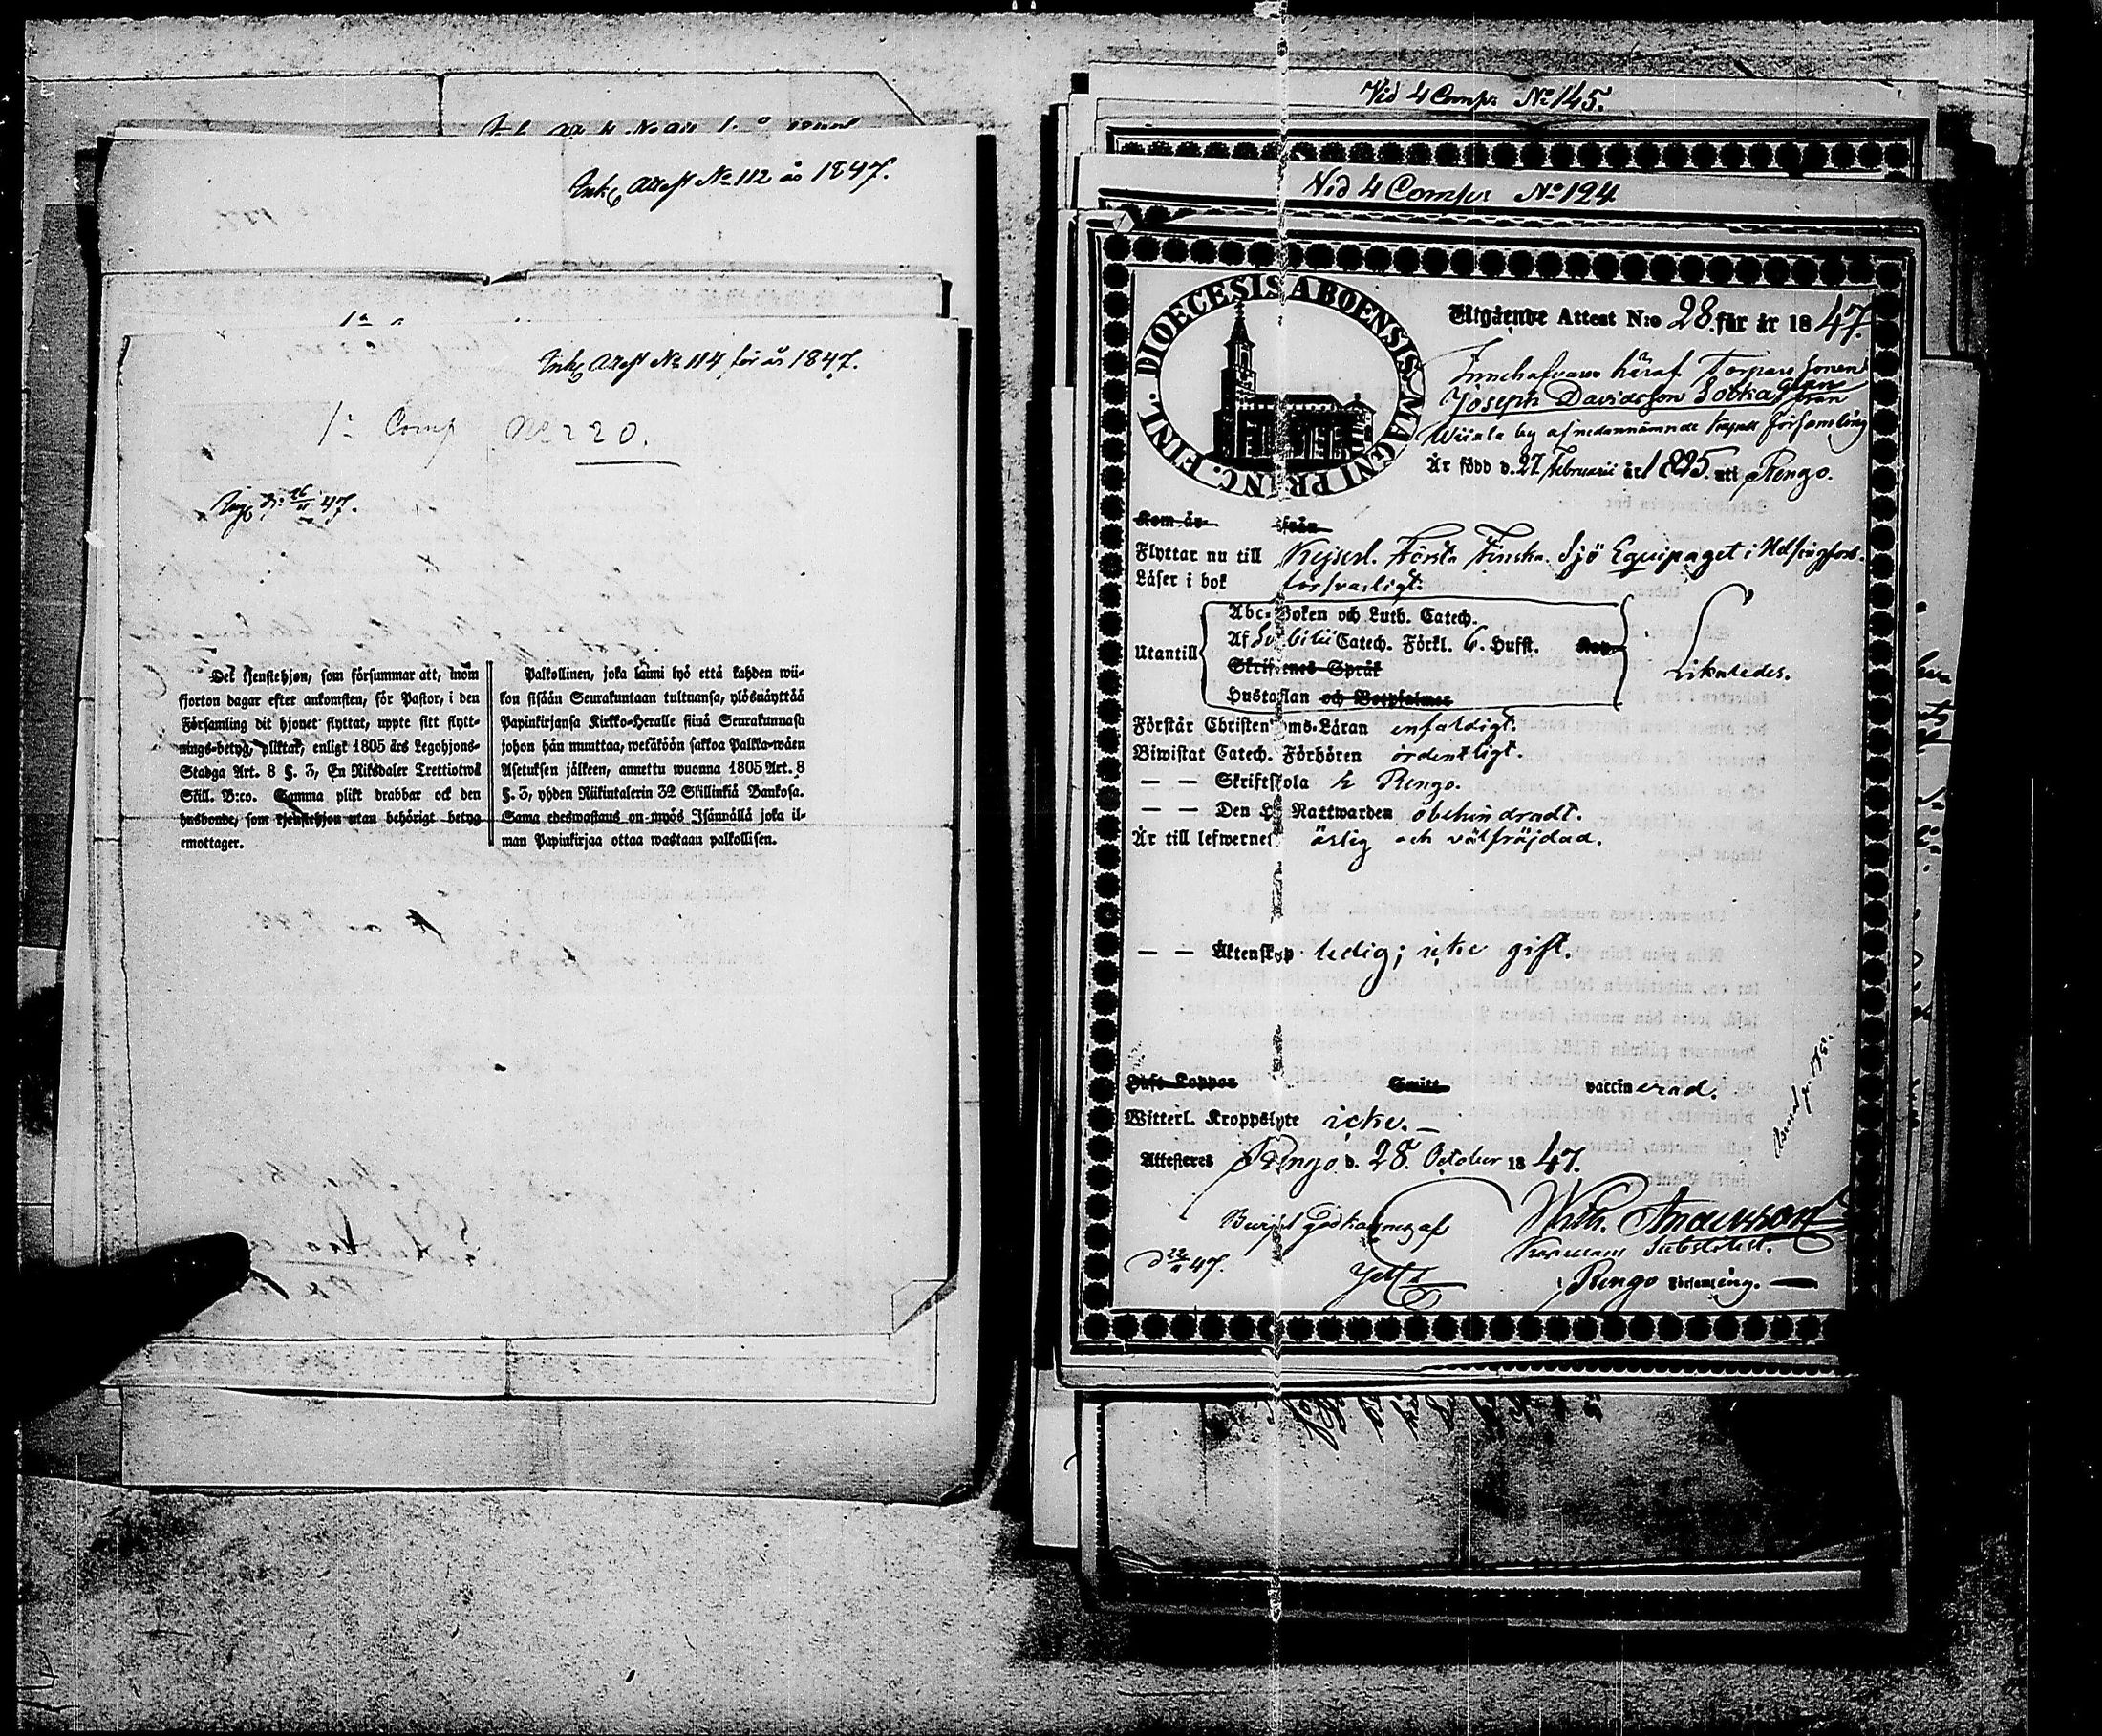 Ink. Attest No 112 år 1847.
Ink. Attest No 114 för år 1847.
1a Comp No 220.
26/11 47.
Det tjenstehjon, som försummar att, inom
fjorton dagar efter ankomsten, för Pastor, i den
Församling dit hjonet flyttat, uppte sitt flytt-
nings-betyg, pliktar, enligt 1805 års Legohjons-
Stadga Art. 8 §. 3, En Riksdaler Trettiotwå
Skill. B:co. Samma plikt drabbar ock den
husbonde, som tjenstehjon utan behörigt betyg
emottager.
Palkollinen, joka laimi lyö että kahden wii-
kon sisään Seurakuntaan tultuansa, ylösnäyttää
Papinkirjansa Kirkko-Heralle siinä Seurakunnasa
johon hän muuttaa, wetäköön sakkoa Palkka-wäen
Asetuksen jälkeen, annettu wuonna 1805 Art. 8
§. 3, yhden Riikintalerin 32 Skillinkiä Bankosa.
Sama edeswastaus on myös Isännällä joka il-
man Papinkirjaa ottaa wastaan palkollisen.
Vid 4 Comp: No 145.
Vid 4 Comp: No 124
DIOECESIS ABOENSIS MAGNI PRINC. FINL.
Utgående Attest N:o 28. för år 1847.
Innehafvaren häraf Torpare Sonen
Joseph Davidsson från
by af nednnämnde Kapell Församling
Är född d. 27 Februarii år 1825. uti Rengo.
Kom år från
Flyttar nu till Kejserl. Första Finska Sjö Equipaget i Helsingfors.
Läser i bok försvarligt.
Abc-Boken och Luth. Catech.
Utantill Af Svebilii Catech. Förkl. 6. Hufst.
Skriftenes Språk
Hustaflan och Botpsalmer
Likaledes.
Förstår Christendoms-Läran enfaldigt.
Biwistat Catech. Förhören ordentligt.
— — Skriftskola i Rengo.
— — Den H. Nattwarden obehindradt.
Är till lefwernet ärlig och välfräjdad.
— — Äktenskap ledig; icke gift.
Haft Koppor vaccinerad.
Witterl. Kroppslyte icke. —
Attesteres Rengo d. 28. October 1847.
Wilh. Andersson
Kapellans Substitut.
i Rengo Församling.
Beviset godkännes af
d 22/11 47.